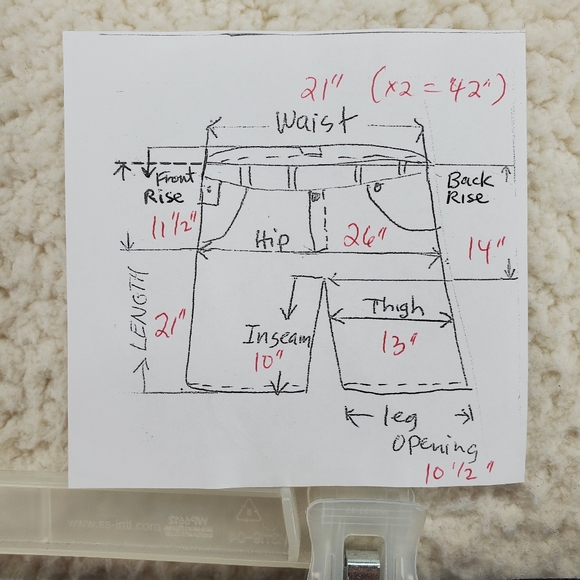 21" (x2 = 42")
Waist
Front
Rise
11 1/2"
Back
Rise
14"
Hip 26"
LENGTH
21"
Inseam
10"
Thigh
13"
leg
Opening
10 1/2"